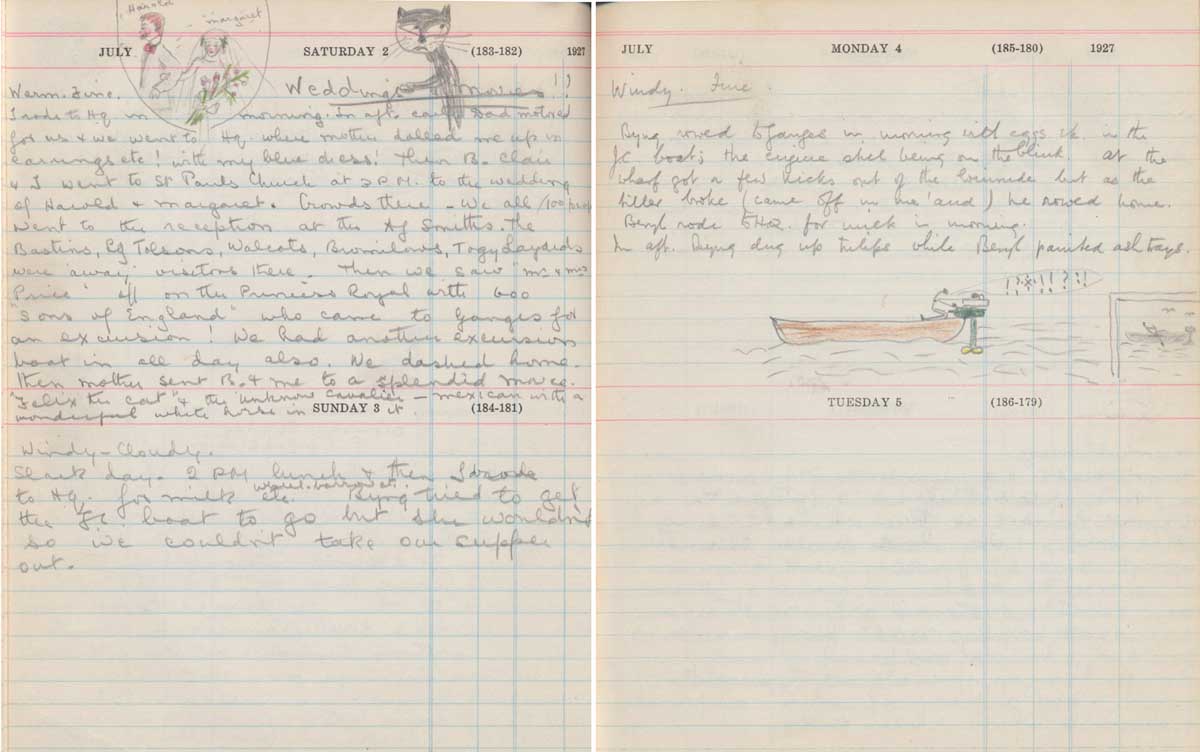 Harold
margaret
JULY SATURDAY 2 (183-182) 1927
Warm. Fine. Weddings & movies!!
I rode to Hq in morning. In aft. early Dad motored
for us & we went to Hq. where mother dolled me up in
earrings etc! with my blue dress! Then B. Clair
& I went to St Pauls Church at 2 P.M. to the wedding
of Harold & margaret. Crowds there - We all /100
went to the reception at the Smiths. The
Bastins, Tolsons, Walcots, Bromilows, Layards
were away; visitors there. Then we saw "mr & mrs
Price" off on the Princess Royal with 600
"Sons of England" who came to Ganges for
an excursion! We had another excursion
boat in all day also. We dashed home.
Then mother sent B. & me to a splendid movie.
"Felix the cat" & the "unknown Cavalier - mexican with a
wonderful white horse in it.
SUNDAY 3 (184-181)
Windy - Cloudy.
Slack day. 2 PM lunch & then I rode
to H.Q. for milk etc. Byng tried to get
the boat to go but she wouldn't
so we couldn't take our supper
out.
JULY MONDAY 4 (185-180) 1927
Windy. Fine.
Byng rowed to Ganges in morning with eggs etc. in the
boat; the engine still being on the blink. at the
wharf got a few kicks out of the but as the
tiller broke (came off in me 'and) he rowed home.
Beryl rode to HQ. for milk in morning.
In aft. Byng dug up tulips while Beryl painted ash trays.
!?*!!?!!
TUESDAY 5 (186-179)